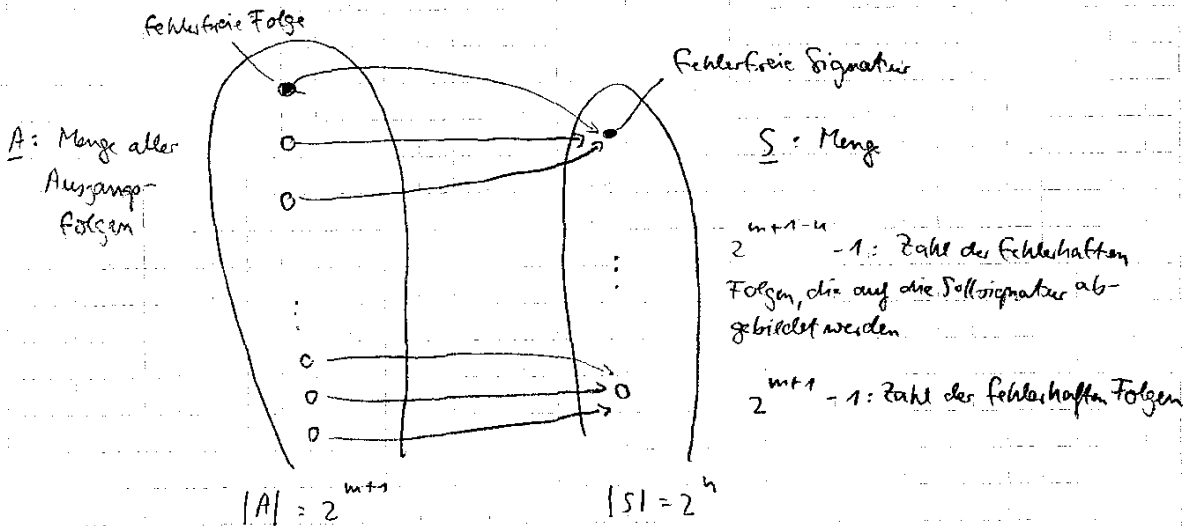 fehlerfreie Folge
fehlerfreie Signatur
A: Menge aller
Ausgangs-
folgen
S: Menge
2^{m+1-n} - 1: Zahl der fehlerhaften
Folgen, die auf die Sollsignatur ab-
gebildet werden
2^{m+1} - 1: Zahl der fehlerhaften Folgen
|A| = 2^{m+1}
|S| = 2^n